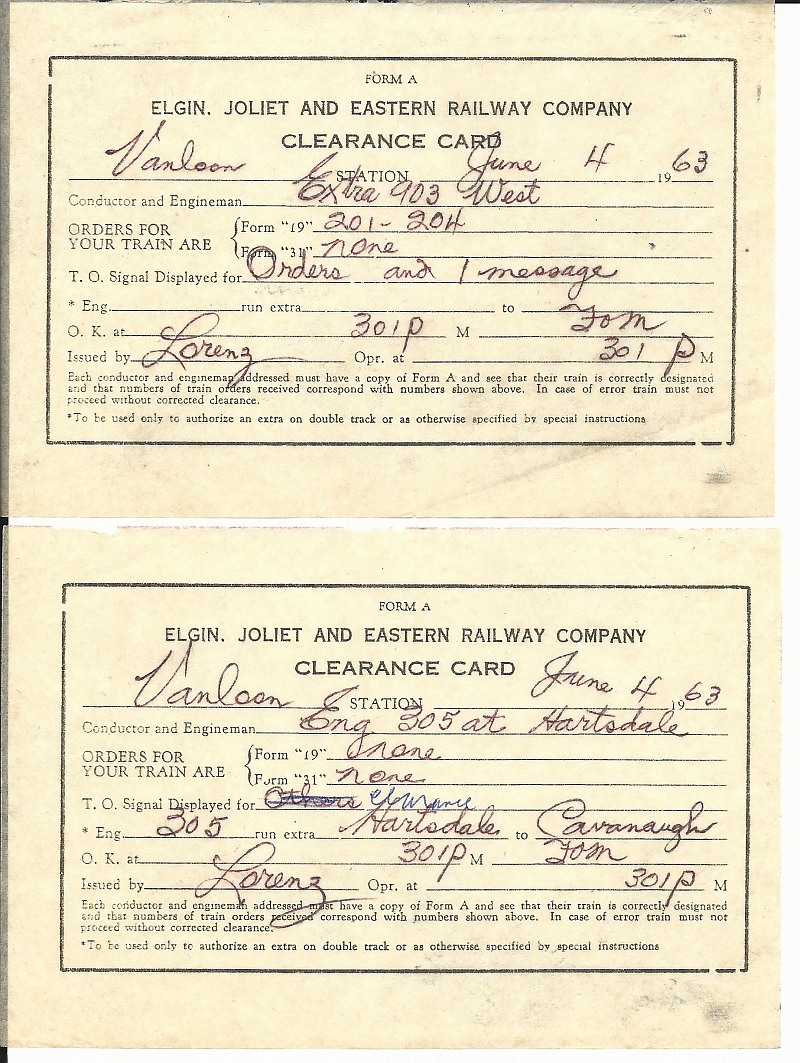 FORM A
ELGIN, JOLIET AND EASTERN RAILWAY COMPANY
CLEARANCE CARD
Vanloon STATION June 4 1963
Conductor and Engineman Extra 903 West
ORDERS FOR YOUR TRAIN ARE { Form "19" 201-204
Form "31" none
T. O. Signal Displayed for Orders and 1 message
* Eng. run extra to
O. K. at 301p M Fom
Issued by Lorenz Opr. at 301 p M
Each conductor and engineman addressed must have a copy of Form A and see that their train is correctly designated
and that numbers of train orders received correspond with numbers shown above. In case of error train must not
proceed without corrected clearance.
*To be used only to authorize an extra on double track or as otherwise specified by special instructions
FORM A
ELGIN, JOLIET AND EASTERN RAILWAY COMPANY
CLEARANCE CARD
Vanloon STATION June 4 1963
Conductor and Engineman Eng 305 at Hartsdale
ORDERS FOR YOUR TRAIN ARE { Form "19" none
Form "31" none
T. O. Signal Displayed for Others clearance
* Eng. 305 run extra Hartsdale to Cavanaugh
O. K. at 301p M Fom
Issued by Lorenz Opr. at 301p M
Each conductor and engineman addressed must have a copy of Form A and see that their train is correctly designated
and that numbers of train orders received correspond with numbers shown above. In case of error train must not
proceed without corrected clearance.
*To be used only to authorize an extra on double track or as otherwise specified by special instructions